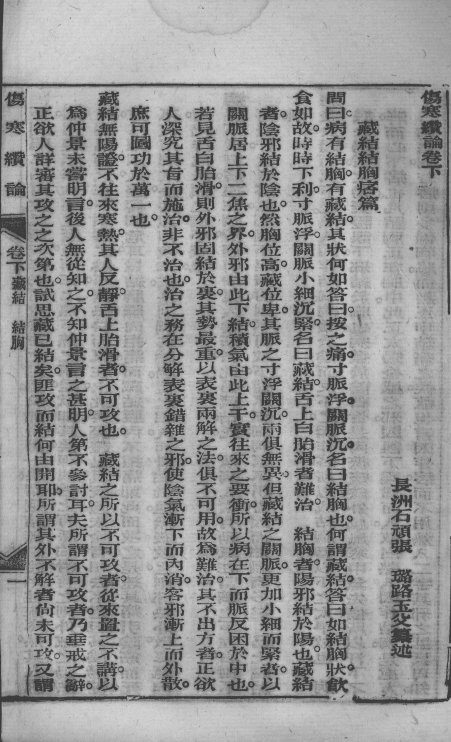 傷寒纘論卷下
長洲石頑張　璐路玉父纂述
藏結結胸痞篇
問曰病有結胸有藏結其狀何如答曰按之痛寸脈浮關脈沉名曰結胸也何謂藏結答曰如結胸狀飲
食如故時時下利寸脈浮關脈小細沉緊名曰藏結舌上白胎滑者難治　結胸者陽邪結於陽也藏結
者陰邪結於陰也然胸位高藏位卑其脈之寸浮關沉兩俱無異但藏結之關脈更加小細而緊者以
關脈居上下二焦之界外邪由此下結積氣由此上干實往來之要衝所以病在下而脈反困於中也
若見舌白胎滑則外邪固結於裏其勢最重以表裏兩解之法俱不可用故為難治其不出方者正欲
人深究其旨而施治非不治也治之務在分解表裏錯雜之邪使陰氣漸下而內消客邪漸上而外散
庶可圖功於萬一也
藏結無陽證不往來寒熱其人反靜舌上胎滑者不可攻也　藏結之所以不可攻者從來置之不講以
為仲景未嘗明言後人無從知之不知仲景言之甚明人第不參討耳夫所謂不可攻者乃垂戒之辭
正欲人詳審其攻之之次第也試思藏已結矣匪攻而結何由開耶所謂其外不解者尚未可攻又謂
傷寒纘論
卷下藏結　結胸
一